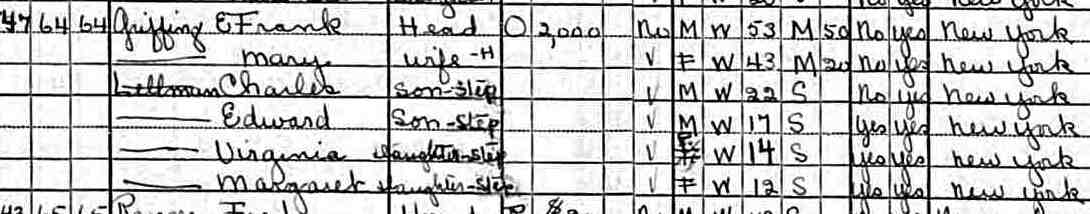 47 64 64 Griffing E Frank Head O 2,000 No M W 53 M 50 No yes New York
Mary wife-H V F W 43 M 20 no yes new york
Littman Charles Son-step V M W 22 S no yes new york
Edward Son-step V M W 17 S yes yes new york
Virginia daughter-step V F W 14 S yes yes new york
Margaret daughter-step V F W 12 S yes yes new york